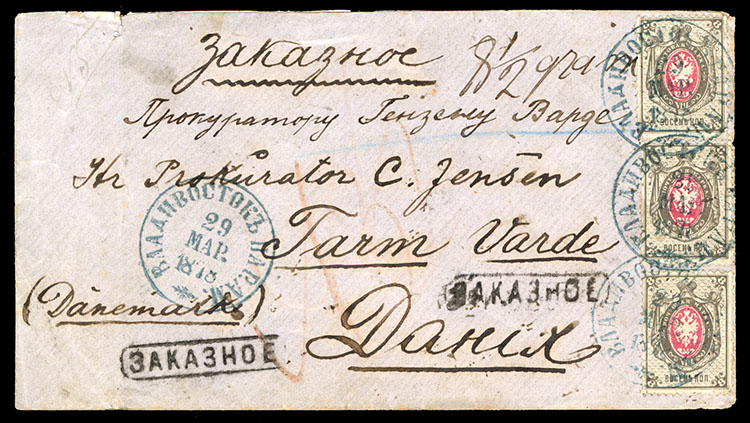 Заказное
8 1/2 gram
Прокуратору Гензену Варде
Hr Prokurator C. Jensen
Tarm Varde
(Dänemark)
Данія
ВЛАДИВОСТОКЪ
29
МАР.
1878
ЗАКАЗНОЕ
ЗАКАЗНОЕ
ВЛАДИВОСТОК
ВОСЕМЬ КОП.
ВОСЕМЬ КОП.
ВОСЕМЬ КОП.